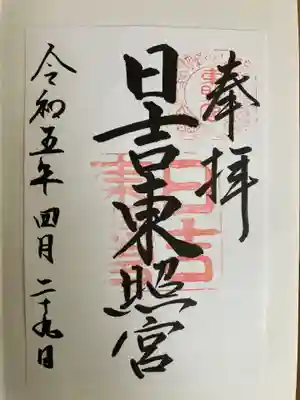 奉拝
日吉東照宮
令和五年四月二十九日